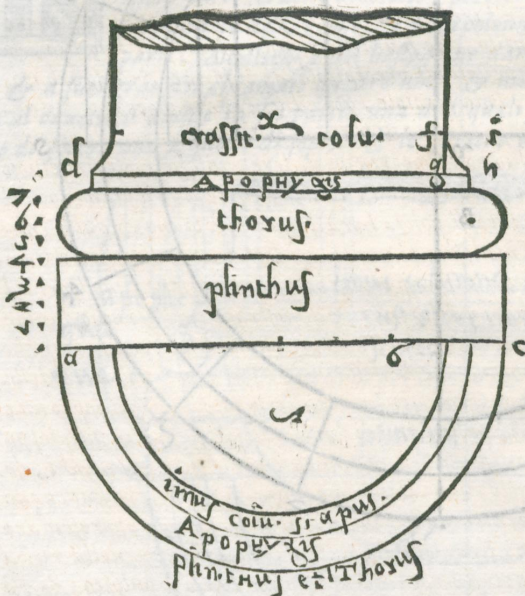 crassit. x colu. f
d g h
Apophygis
thorus.
plinthus
a b c
imus colu. scapus.
Apophygis
plinthus et Thorus